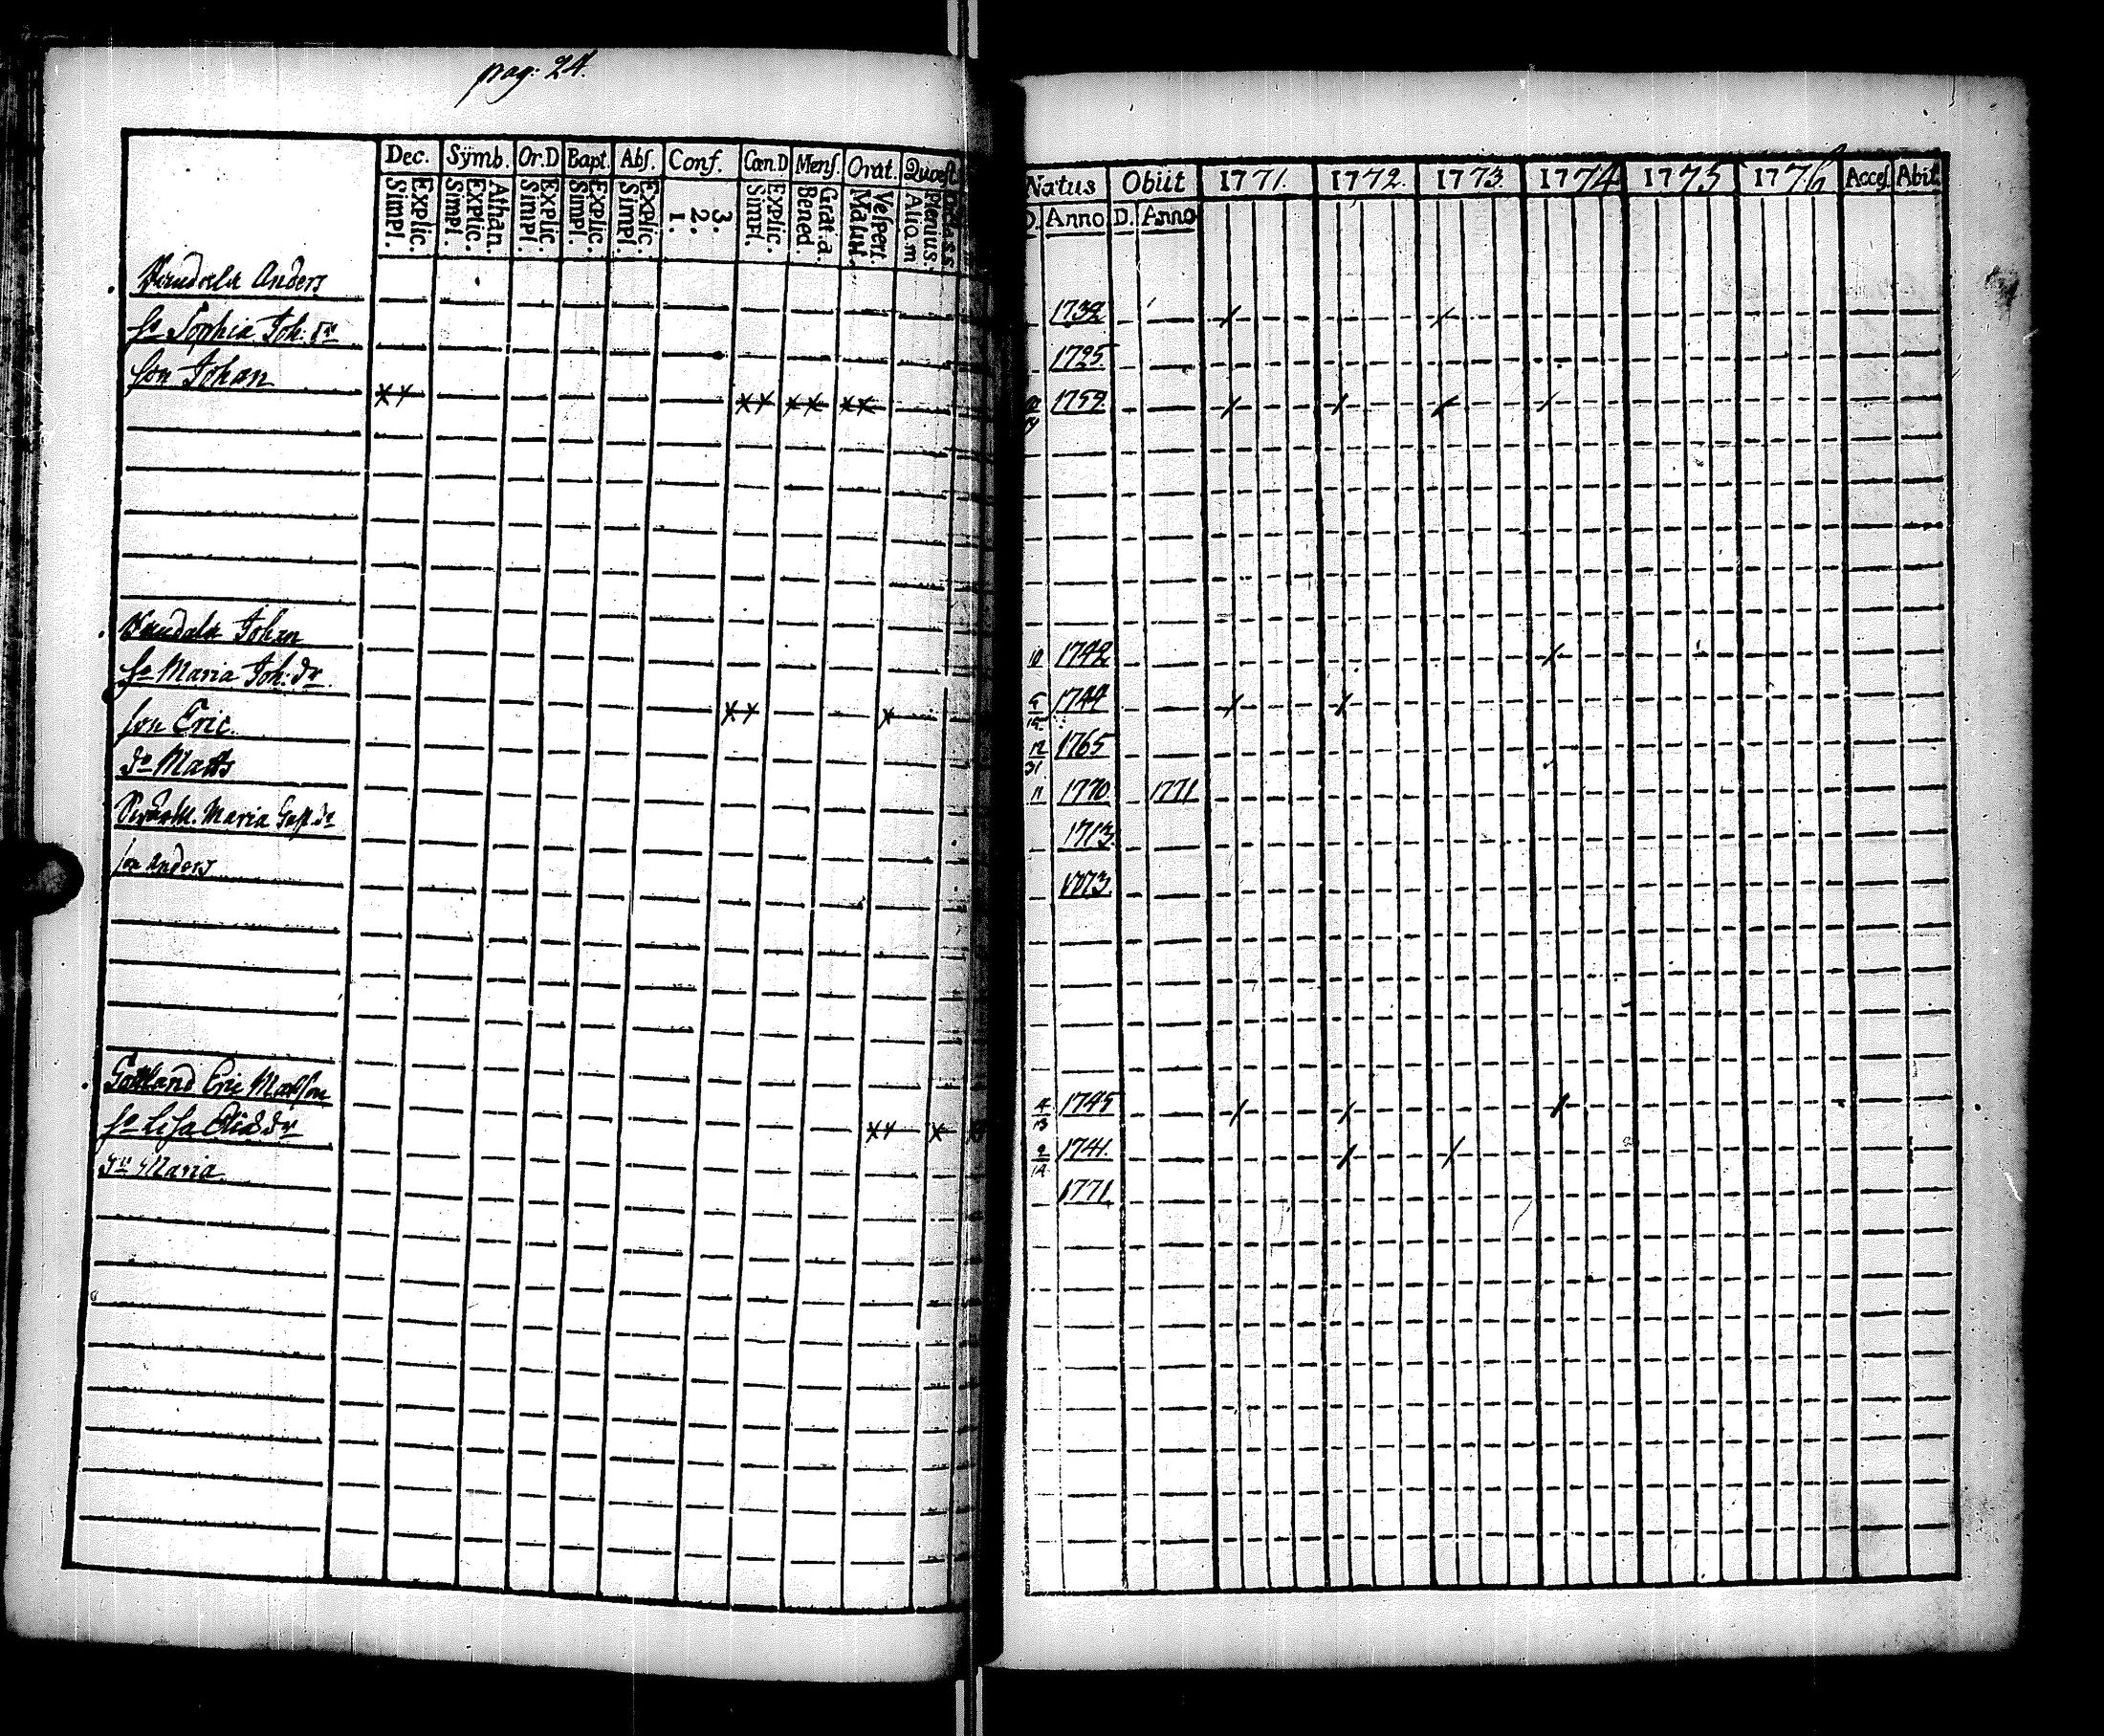 pag: 24.
Dec. Symb. Or.D Bapt. Abs. Conf. Cœn.D Mens. Orat. Quæst
Explic. Simpl. Athan. Explic. Simpl. Explic. Simpl. Explic. Simpl. Explic. Simpl. 3. 2. 1. Explic. Simpl. Grat.a Bened. Vespert. Matut. Plenius. Aliq.m
Natus Obiit 1771. 1772. 1773. 1774 1775 1776 Acces. Abit.
D. Anno D. Anno
Anders 1732
Sophia Joh. dr 1725.
son Johan 1759
Johan 10 1742
Maria Joh: dr 1744
son Eric 12/31 1765
Matts 11 1770 1771
Maria 1713.
son Anders 1773.
Gottland Eric Matsson 4/13 1745
Lisa 9/14 1741.
Maria 1771